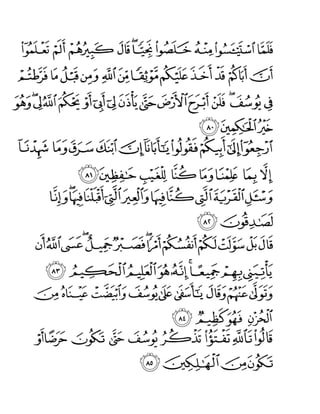 فَلَمَّا ٱسْتَيْـَٔسُوا۟ مِنْهُ خَلَصُوا۟ نَجِيًّا ۖ قَالَ كَبِيرُهُمْ أَلَمْ تَعْلَمُوٓا۟
أَنَّ أَبَاكُمْ قَدْ أَخَذَ عَلَيْكُم مَّوْثِقًا مِّنَ ٱللَّهِ وَمِن قَبْلُ مَا فَرَّطتُمْ
فِى يُوسُفَ ۖ فَلَنْ أَبْرَحَ ٱلْأَرْضَ حَتَّىٰ يَأْذَنَ لِىٓ أَبِىٓ أَوْ يَحْكُمَ ٱللَّهُ لِى ۖ وَهُوَ
خَيْرُ ٱلْحَـٰكِمِينَ ٨٠
ٱرْجِعُوٓا۟ إِلَىٰٓ أَبِيكُمْ فَقُولُوا۟ يَـٰٓأَبَانَآ إِنَّ ٱبْنَكَ سَرَقَ وَمَا شَهِدْنَآ
إِلَّا بِمَا عَلِمْنَا وَمَا كُنَّا لِلْغَيْبِ حَـٰفِظِينَ ٨١
وَسْـَٔلِ ٱلْقَرْيَةَ ٱلَّتِى كُنَّا فِيهَا وَٱلْعِيرَ ٱلَّتِىٓ أَقْبَلْنَا فِيهَا ۖ وَإِنَّا
لَصَـٰدِقُونَ ٨٢
قَالَ بَلْ سَوَّلَتْ لَكُمْ أَنفُسُكُمْ أَمْرًا ۖ فَصَبْرٌ جَمِيلٌ ۖ عَسَى ٱللَّهُ أَن
يَأْتِيَنِى بِهِمْ جَمِيعًا ۚ إِنَّهُۥ هُوَ ٱلْعَلِيمُ ٱلْحَكِيمُ ٨٣
وَتَوَلَّىٰ عَنْهُمْ وَقَالَ يَـٰٓأَسَفَىٰ عَلَىٰ يُوسُفَ وَٱبْيَضَّتْ عَيْنَاهُ مِنَ
ٱلْحُزْنِ فَهُوَ كَظِيمٌ ٨٤
قَالُوا۟ تَٱللَّهِ تَفْتَؤُا۟ تَذْكُرُ يُوسُفَ حَتَّىٰ تَكُونَ حَرَضًا أَوْ
تَكُونَ مِنَ ٱلْهَـٰلِكِينَ ٨٥